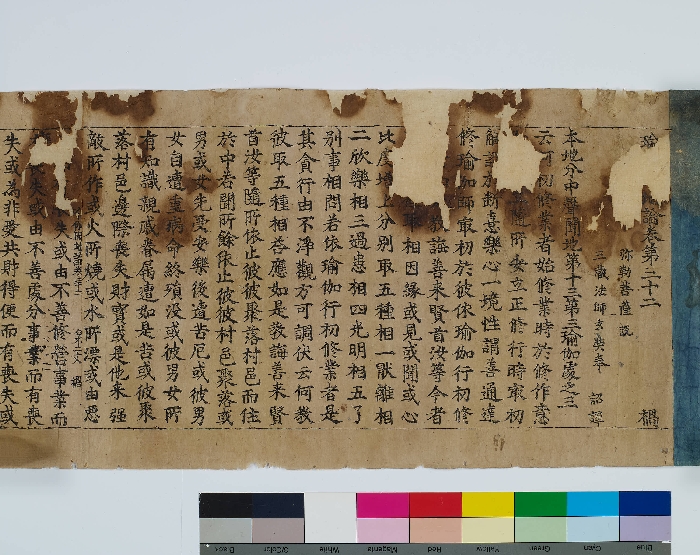 瑜 論卷第三十二 禍
弥勒菩薩說
三藏法師玄奘奉 詔譯
本地分中聲聞地第十三第三瑜伽處之三
云何初修業者始修業時於修作意
隨所安立正修行時最初
於斷喜樂心一境性謂善通達
修瑜伽師最初於彼依瑜伽行初修
教誨善來賢首汝等今者
取相因緣或見或聞或心
比度增上分別取五種相一厭離相
二欣樂相三過患相四光明相五了
別事相問若依瑜伽行初修業者是
其貪行由不淨觀方可調伏云何教
彼取五種相荅應如是教誨善來賢
首汝等隨所依止彼彼聚落村邑而住
於中若聞所餘依止彼彼村邑聚落或
男或女先受安樂後遭苦厄或彼男
女自遭重病命終殞沒或彼男女所
有知識親戚眷属遭如是苦或彼聚
落村邑邊際喪失財寶或是他来强
敵所作或火所燒或水所漂或由惡
失或由不善修營事業而
失或由不善處分事業而有喪
失或為非愛共財得便而有喪失或